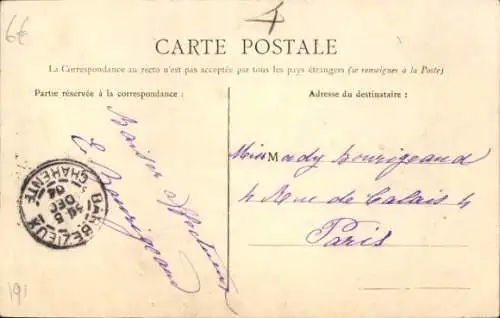 6€
4
CARTE POSTALE
La Correspondance au recto n'est pas acceptée par tous les pays étrangers (se renseigner à la Poste)
Partie réservée à la correspondance :
Adresse du destinataire :
Baisers affectueux
E Bourigeaud
BARBEZIEUX
CHARENTE
5
DEC
04
Miss Mady Bourigeaud
4 Rue de Calais 4
Paris
191